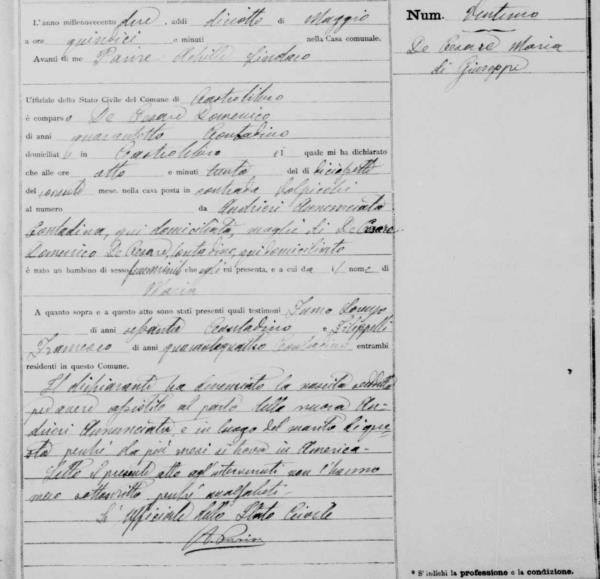 L'anno millenovecento dieci, addi diciotto di Maggio
a ore quindici e minuti nella Casa comunale.
Avanti di me Achille Sindaco
Ufficiale dello Stato Civile del Comune di Castrolibero
è comparso De Cesare Domenico
di anni quarantotto Contadino
domiciliato in Castrolibero il quale mi ha dichiarato
che alle ore otto e minuti trenta del di diciassette
del corrente mese, nella casa posta in contrada
al numero da Andrieri Annunciata
Contadina, qui domiciliata, moglie di De Cesare
Domenico De Cesare, Contadino, qui domiciliato
è nato un bambino di sesso femminile che egli mi presenta, e a cui da il nome di
Maria
A quanto sopra e a questo atto sono stati presenti quali testimoni
di anni settanta Contadino e Filippelli
Francesco di anni quarantaquattro Contadino, entrambi
residenti in questo Comune.
Il dichiarante ha denunciato la nascita suddetta
per avere assistito al parto della nuora An-
drieri Annunciata e in luogo del marito di que-
sta perchè da più mesi si trova in America-
Letto il presente atto agl'intervenuti non l'hanno
meco sottoscritto perchè analfabeti-
L'Ufficiale dello Stato Civile
Num. Ventuno
De Cesare Maria
di Giuseppe
* S'indichi la professione o la condizione.